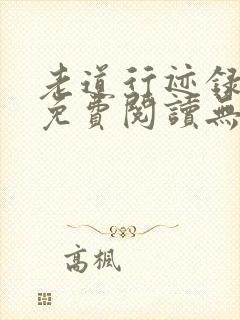 老道行迹録
免費閱讀無
高楓